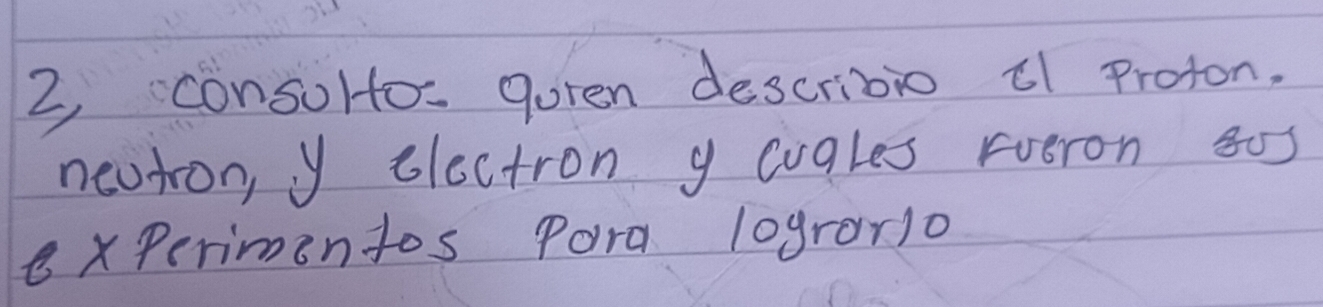 2, consulto: quien describio el Proton.
neutron, y electron y cuales fueron sus
experimentos para lograrlo